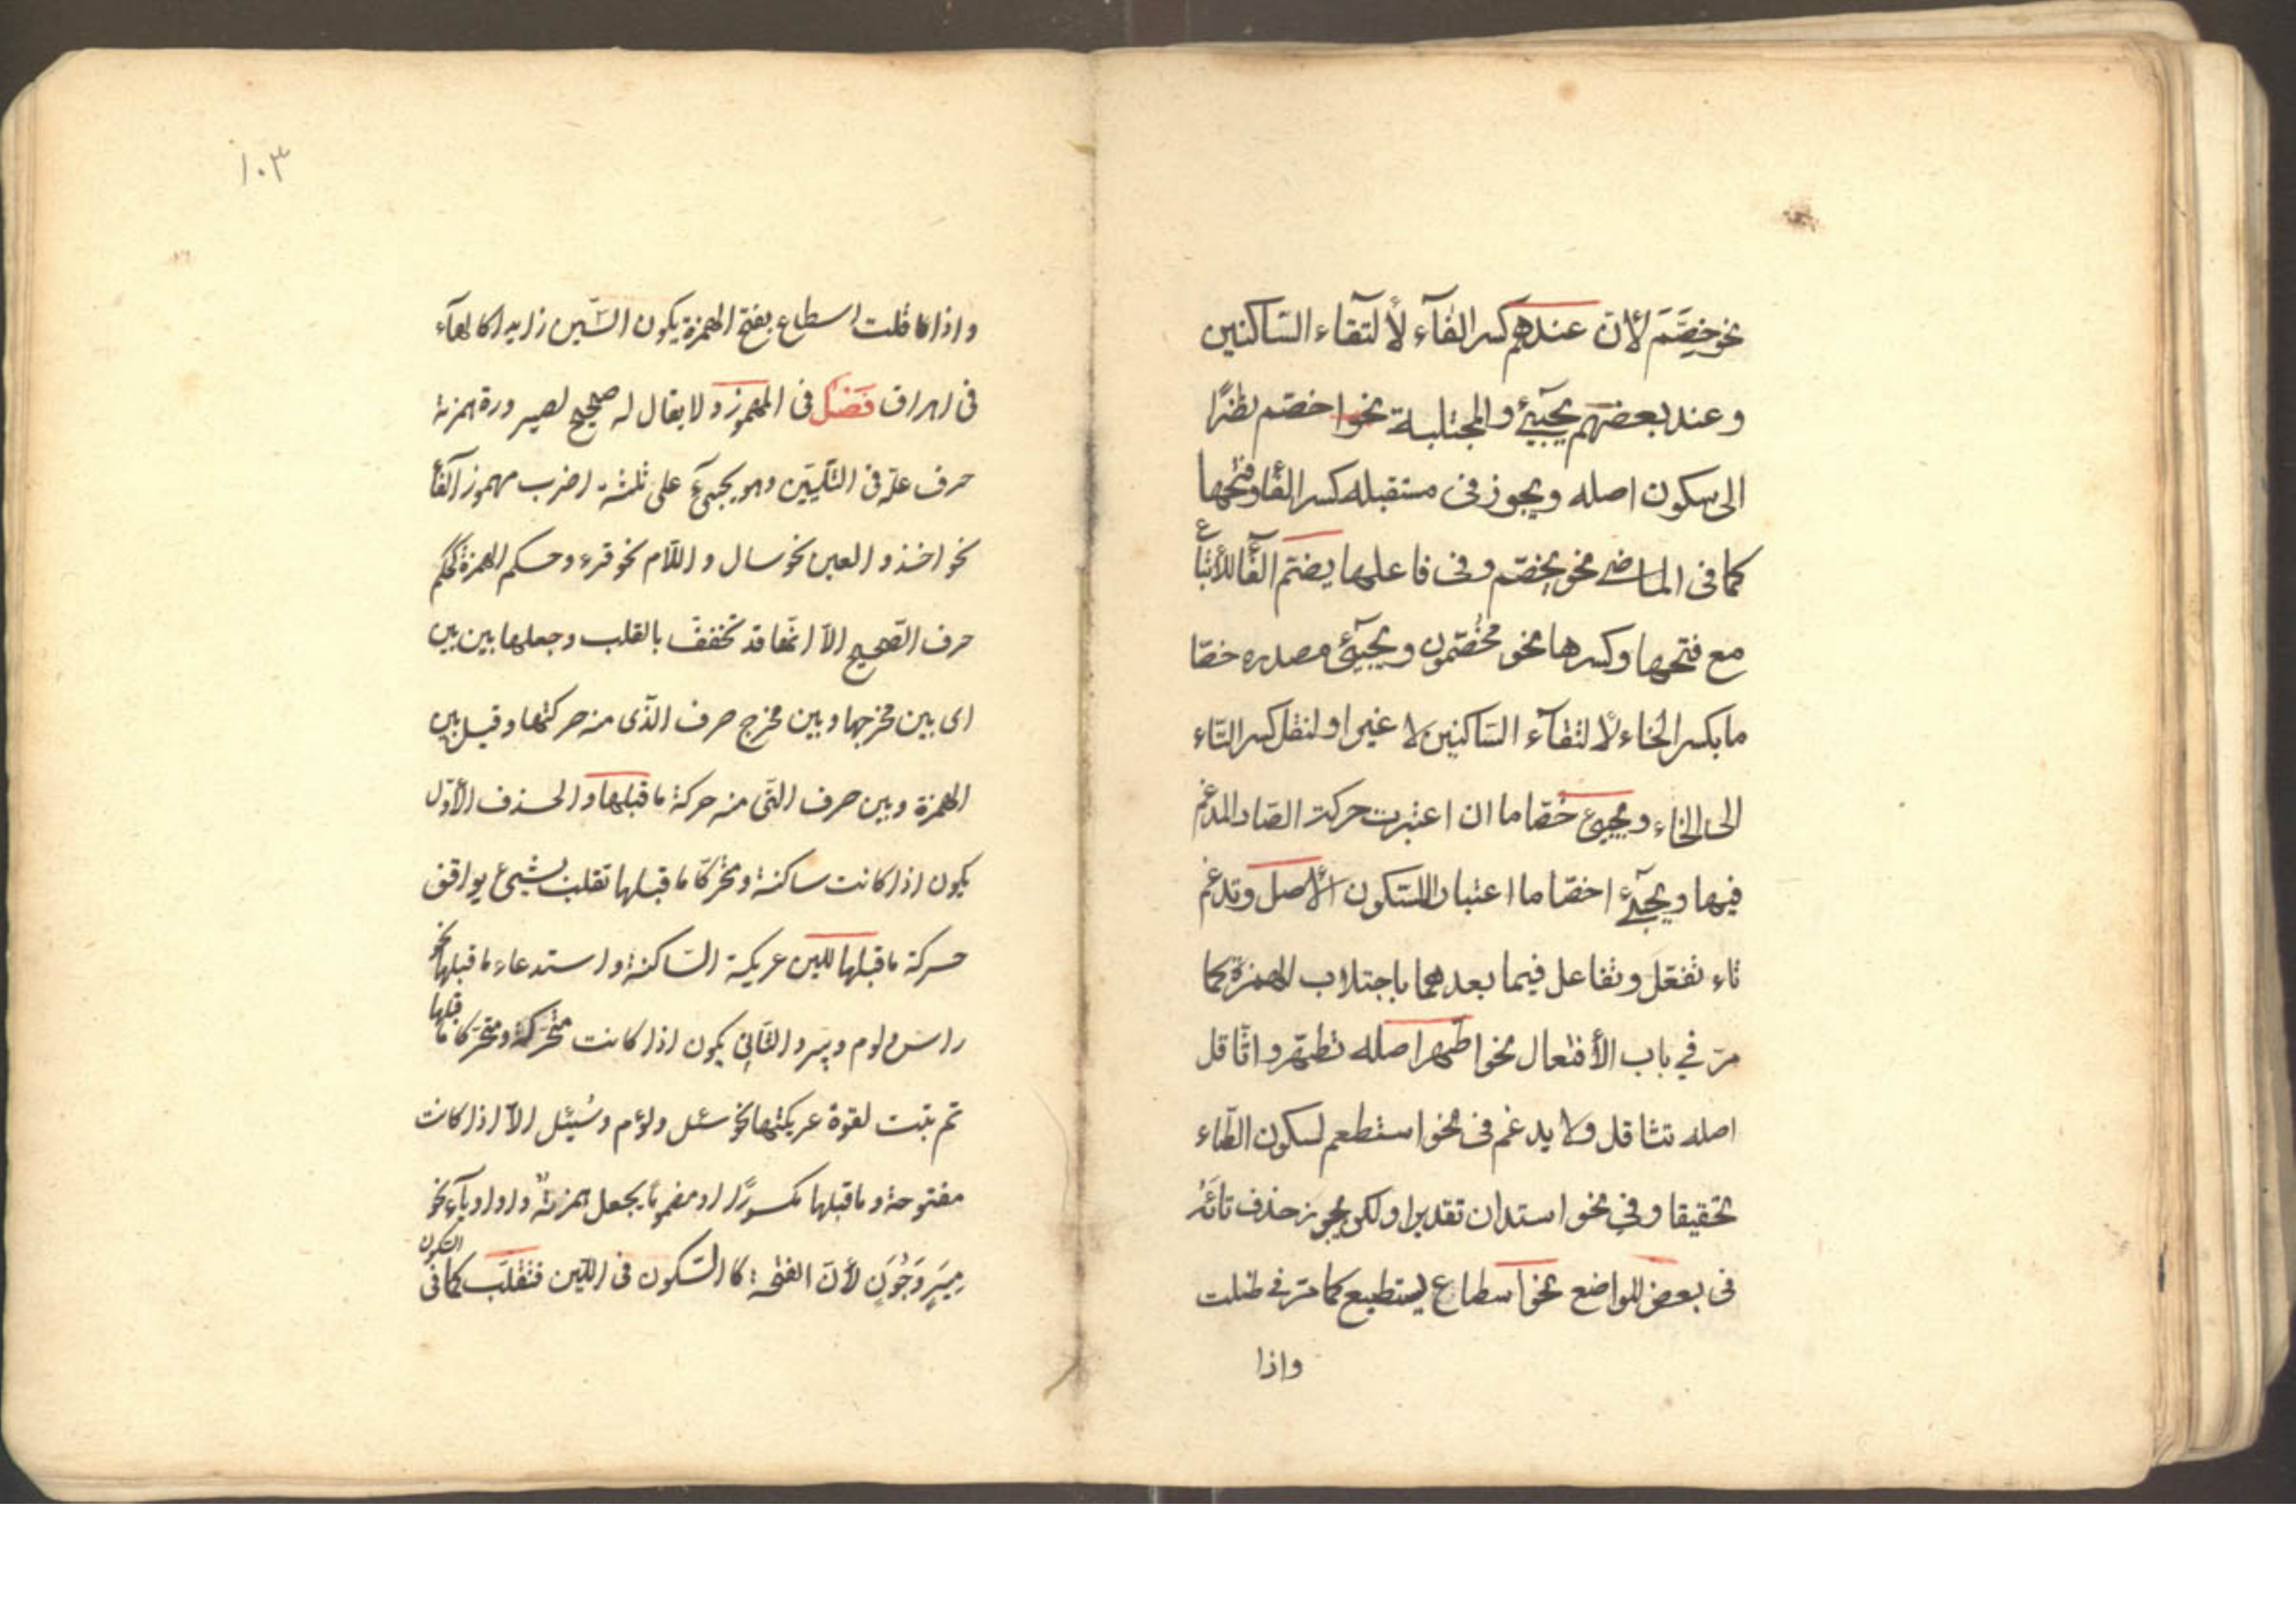 نحو خِصَّمَ لأن عندهم كسر الفآء لألتقاء الساكنين
وعند بعضهم يجيئ والمجتلبة نحوا خصّم نظرًا
الى سكون اصله ويجوز فى مستقبله كسر الفاء وفتحها
كما فى الماضى نحو يخصّم وفى فاعلها يضم الفاء للأتباع
مع فتحها وكسرها نحو مخُصّمون ويجيئ مصدره خصّا
ما بكسر الخاء لألتقآء الساكنين لا غير او لنقل كسر التاء
الى الخاء ويجيئ خَصّاما ان اعتبرت حركت الصّاد المدغم
فيها ويجيئ اخصّاما اعتبارا للسّكون الأصل وتدغم
تاء تفعّل وتفاعل فيما بعدهما باجتلاب الهمزة كما
مرّ في باب الأفتعال نحو اطّهر اصله تطهّر واثّاقل
اصله تثاقل ولا يدغم فى نحوا ستطعم لسكون الطّاء
تحقيقا وفي نحو استدان تقديرا ولكن يجوز حذف تائه
فى بعض المواضع نحوا سطاع يستطيع كما مرّ في ظلت
واذا
١٠٣
واذا قلت اسطاع بفتح الهمزة يكون السّين زايدا كا لهآء
فى اهراق فَصْل فى المهموز ولا يقال له صحيح لصيرورة همزته
حرف علّة فى التّليين وهو يجيئ على ثلثة اضرب مهموز الفاء
نحو اخذ و العين نحو سال و اللّام نحو قرء وحكم الهمزة كحكم
حرف الصّحيح الّا انّها قد تخفّف بالقلب وجعلها بين بين
اى بين مخرجها وبين مخرج حرف الذّى منه حركتها وقيل بين
الهمزة وبين حرف التّى منه حركة ما قبلها و الحذف الأوّل
يكون اذا كانت ساكنة ومتحرّكا ما قبلها تقلب بشيئ يوافق
حركة ما قبلها للين عريكة السّاكنة و استدعاء ما قبلها نحو
راس ولوم وبير و الثّانى يكون اذا كانت متحرّكة ومتحرّكا ما قبلها
ثم تثبت لقوة عريكتها نحو سئل ولؤم وسُئِل الّا اذا كانت
مفتوحة وما قبلها مكسورًا او مضمومًا يجعل همزته واوا وياء نحو
مِيَر وَجُوَن لأنّ الفتحة كا السّكون فى اللّين فتقلب كما فى السّكون